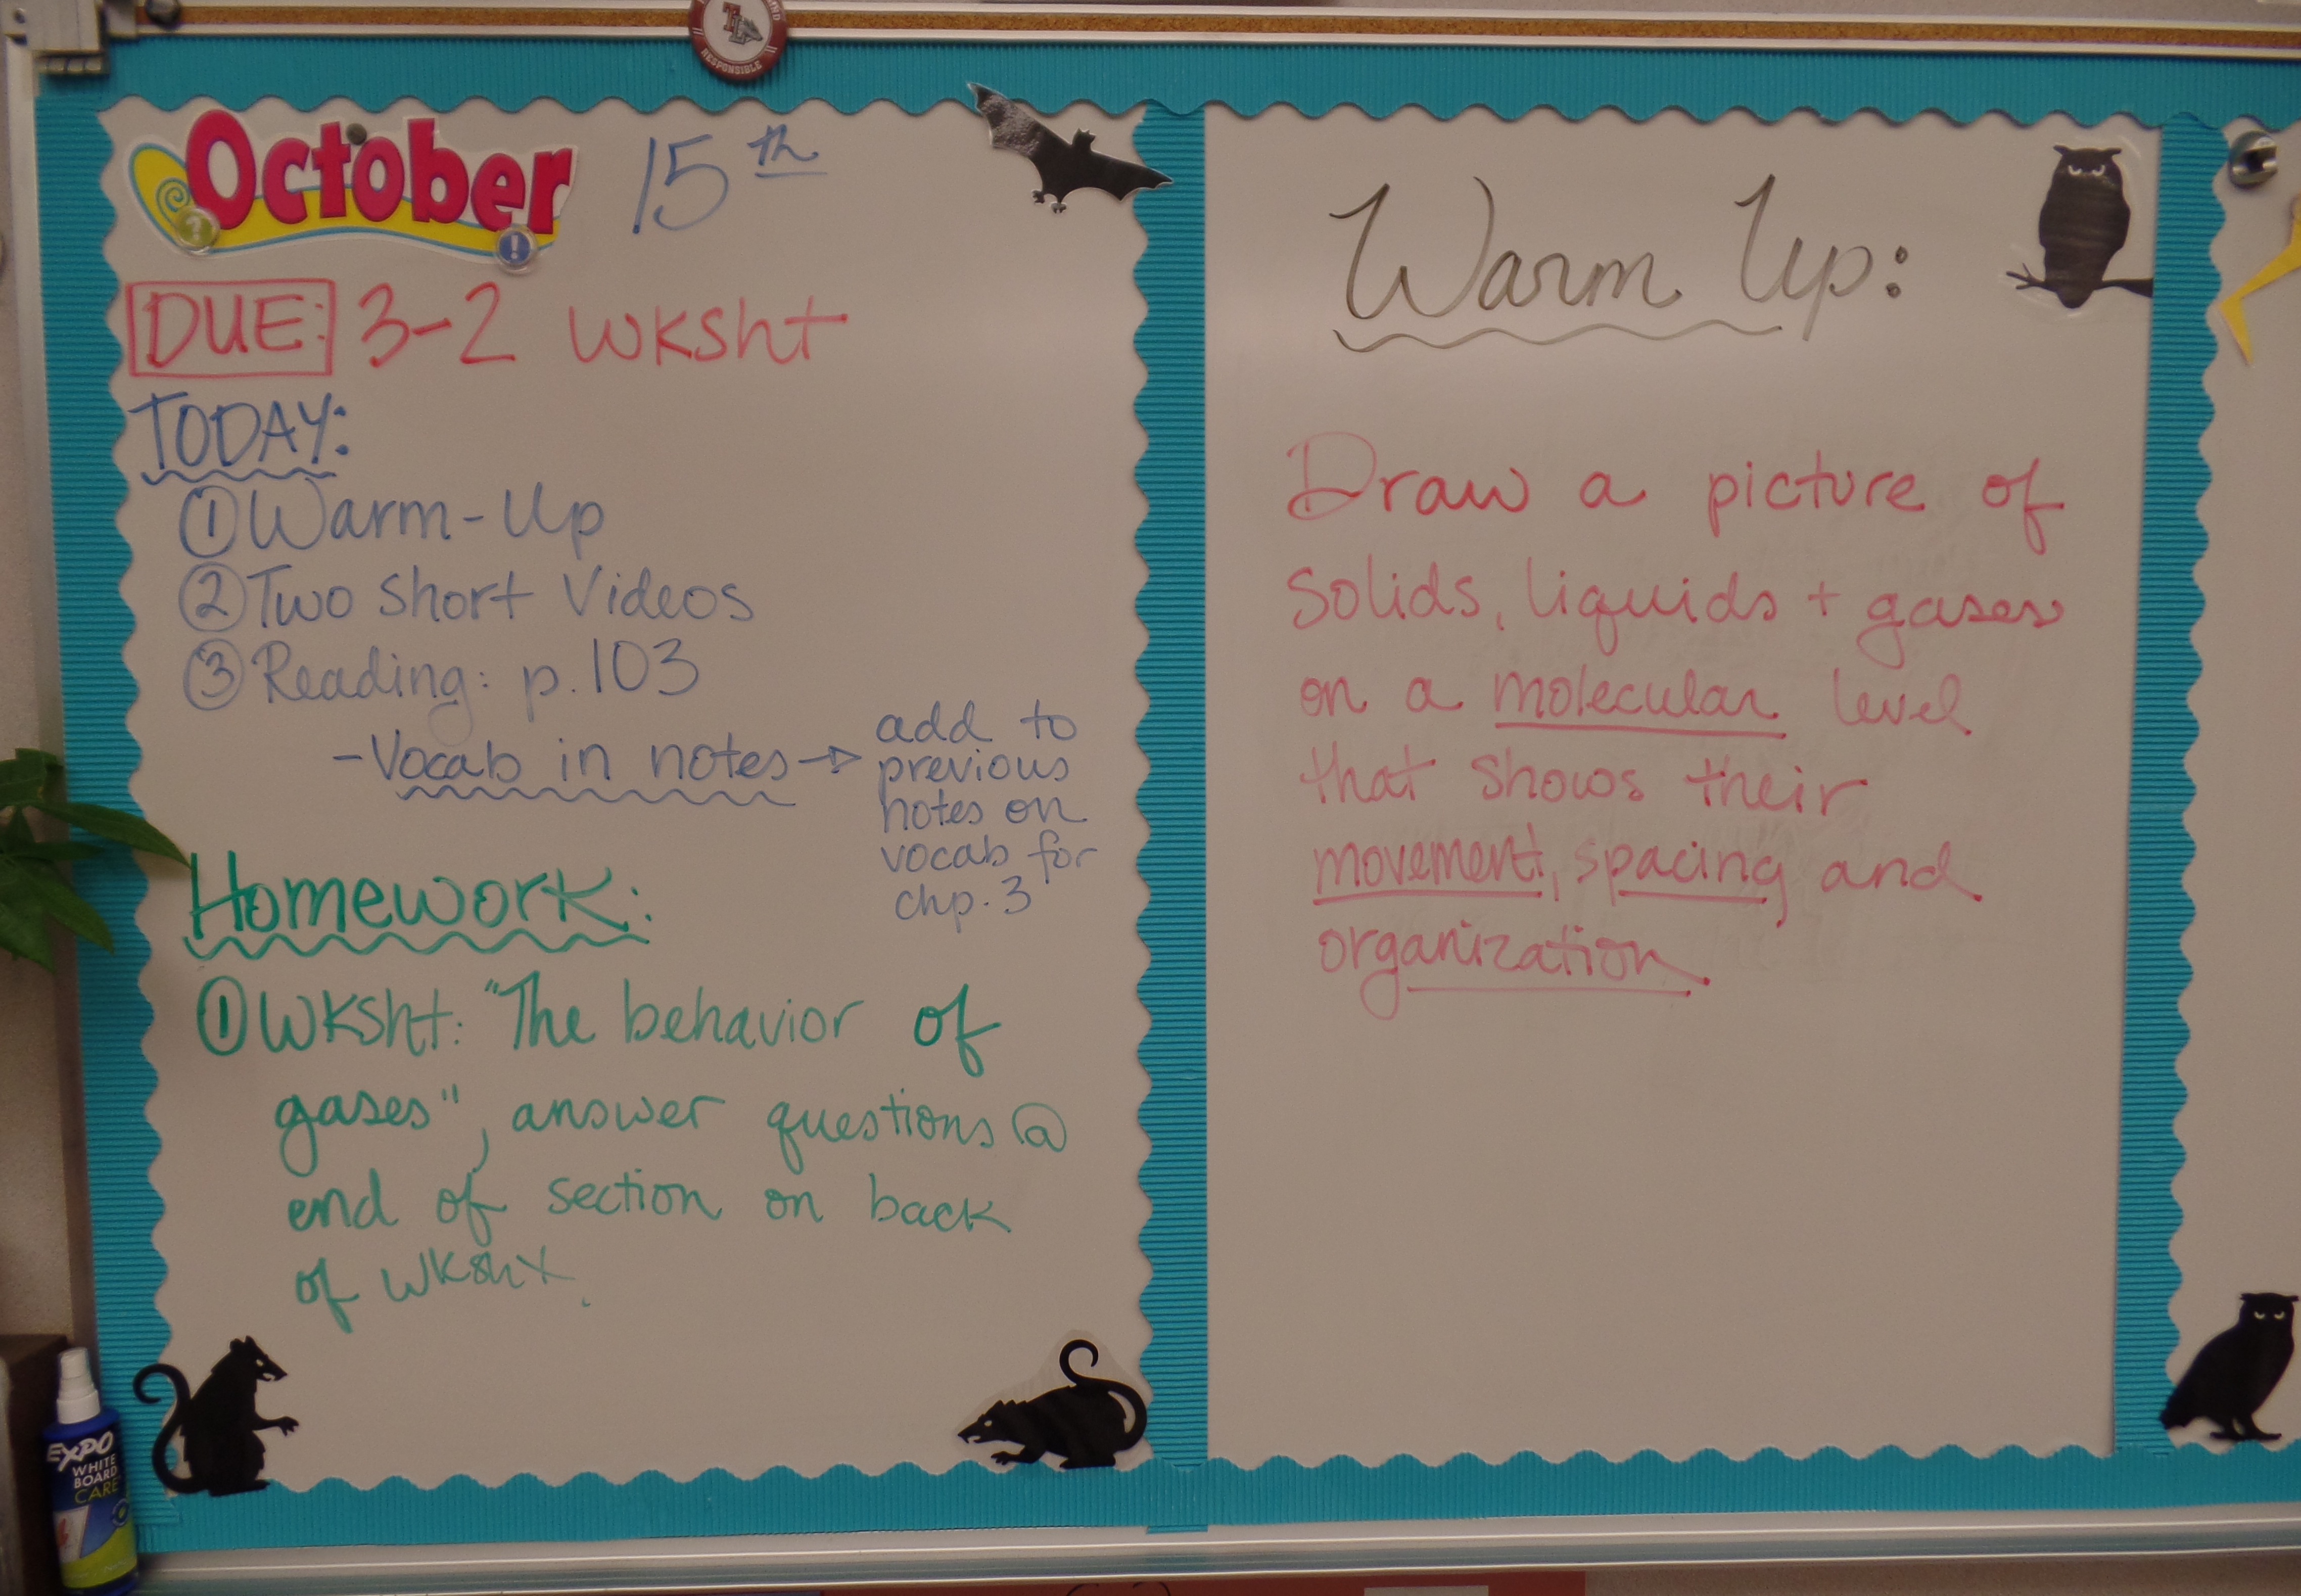 RESPONSIBLE
October 15th
DUE: 3-2 WKSht
TODAY:
① Warm-Up
② Two Short Videos
③ Reading: p.103
- Vocab in notes →
add to
previous
notes on
vocab for
chp. 3
Homework:
① WKSht: "The behavior of
gases", answer questions @
end of section on back
of wksht.
Warm Up:
Draw a picture of
solids, liquids + gases
on a molecular level
that shows their
movement, spacing and
organization.
EXPO
WHITE
BOARD
CARE